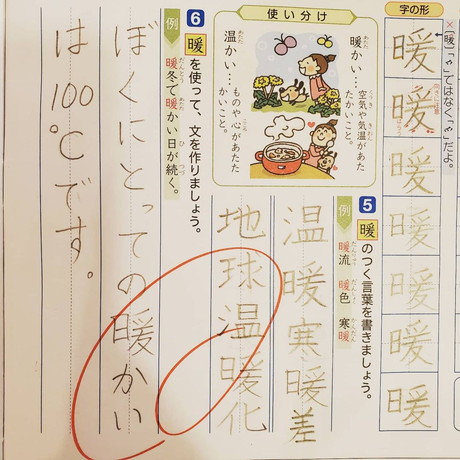 字の形
ではなく、
だよ。
暖
暖
暖
暖
暖
暖
暖
5 暖のつく言葉を書きましょう。
例 暖流 暖色 寒暖
温暖 寒暖差
地球温暖化
使い分け
暖かい…空気や気温があ
たたかいこと。
温かい…ものや心があたた
かいこと。
6 暖を使って、文を作りましょう。
例 暖冬で暖かい日が続く。
ぼくにとっての暖かい
は100℃です。